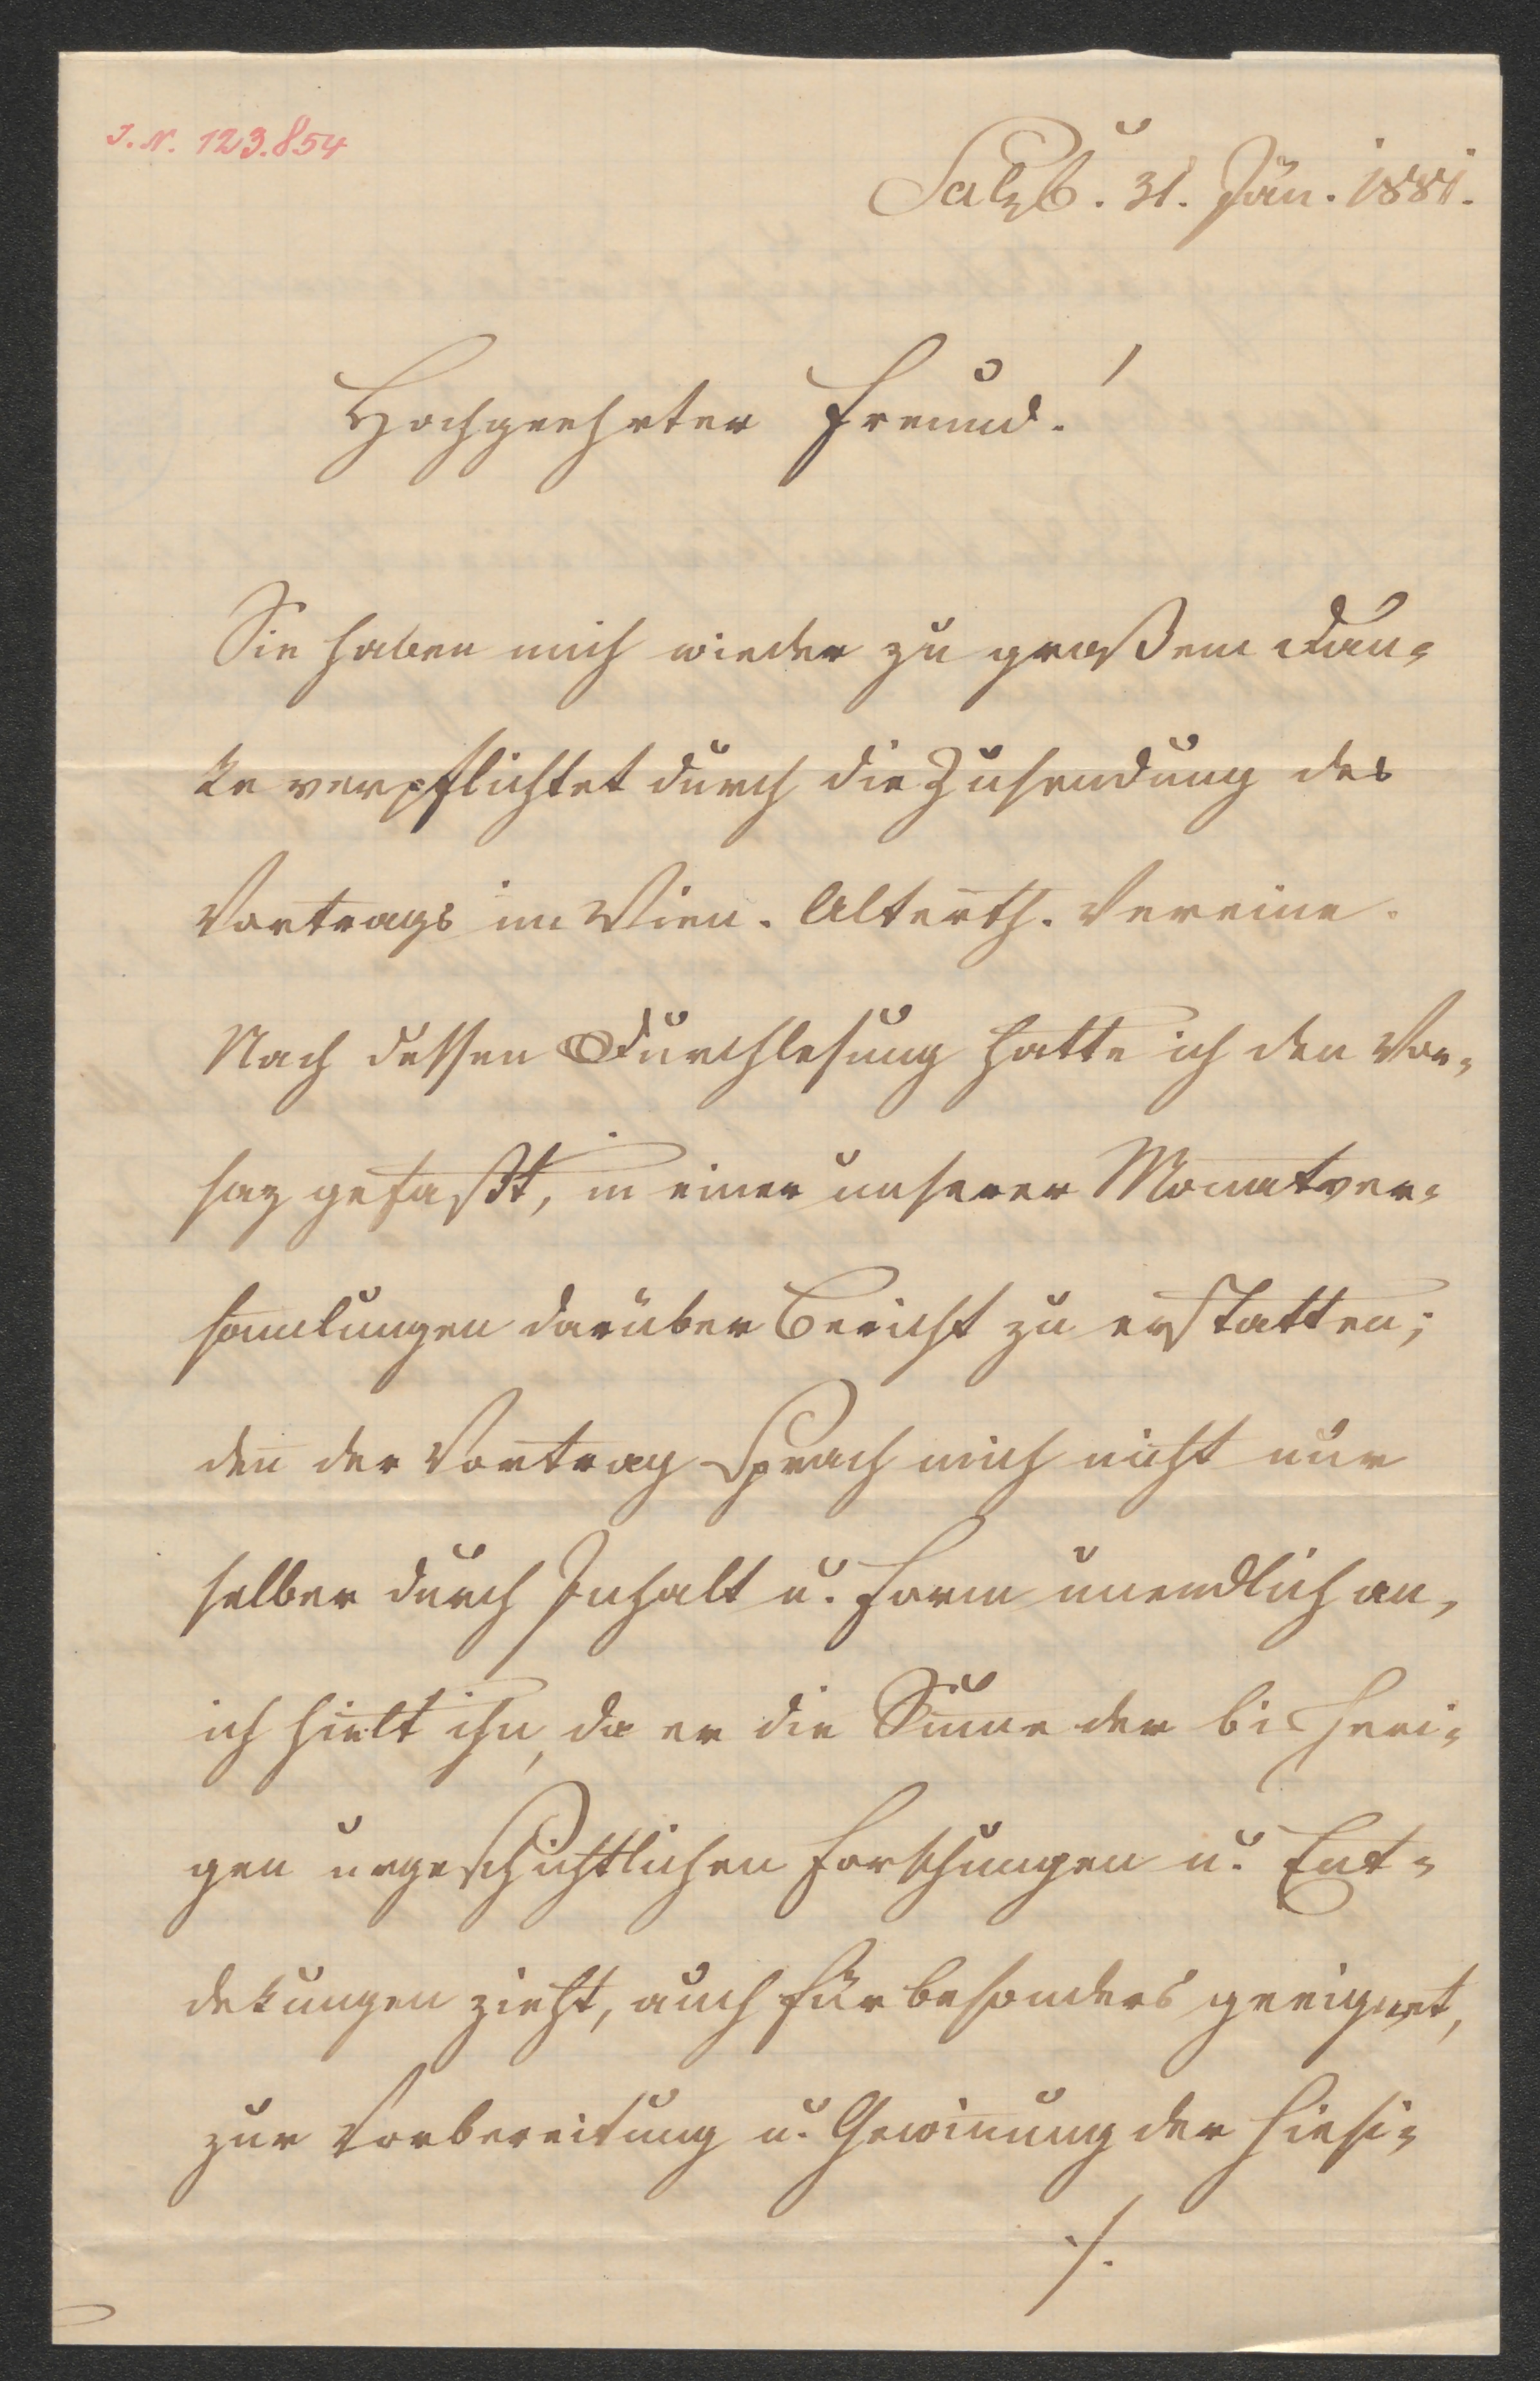 J. N. 123.854
Salzb. 31. Jän. 1881.
Hochgeehrter Freund!
Sie haben mich wieder zu großem Dan-
ke verpflichtet durch die Zusendung des
Vortrags im Wien. Alterth. Vereine.
Nach dessen Durchlesung hatte ich den Vor-
saz gefaßt, in einer unserer Monatver-
samlungen darüber Bericht zu erstatten;
den̄ der Vortrag sprach mich nicht nur
selber durch Inhalt u. Form unendlich an,
ich hielt ihn, da er die Sum̄e der bisheri-
gen urgeschichtlichen Forschungen u. Ent-
dekungen zieht, auch für besonders geeignet,
zur Vorbereitung u. Gewin̄ung der hiesi-
./.